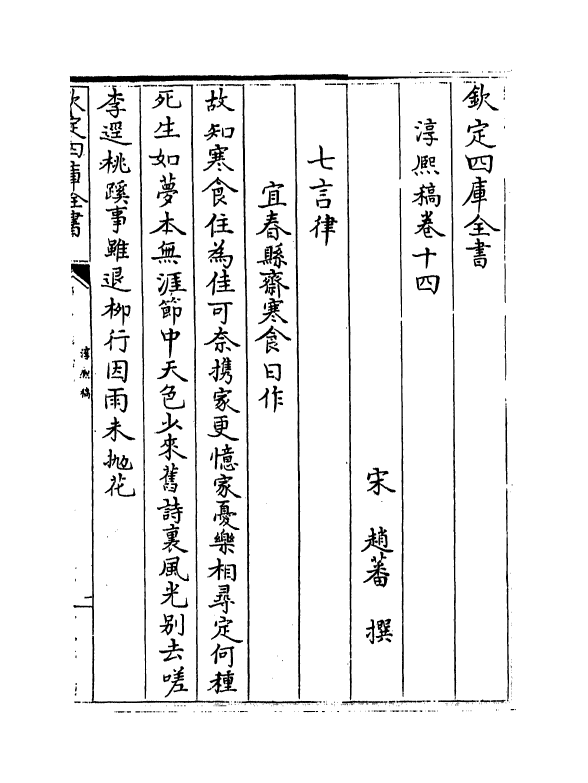 欽定四庫全書
淳熙稿卷十四
宋　趙蕃　撰
七言律
宜春縣齋寒食日作
故知寒食住為佳可奈攜家更憶家憂樂相尋定何種
死生如夢本無涯節中天色少來舊詩裏風光别去嗟
李逕桃蹊事雖退柳行因雨未抛花
欽定四庫全書
淳熙稿
一